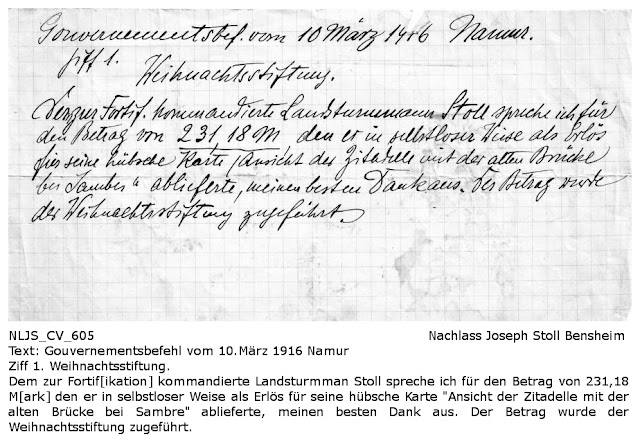 Gouvernementsbef. vom 10 März 1916 Namur.
Ziff 1.
Weihnachtsstiftung.
Dem zur Fortif. kommandierte Landsturmmann Stoll spreche ich für
den Betrag von 231,18 M, den er in selbstloser Weise als Erlös
für seine hübsche Karte „Ansicht der Zitadelle mit der alten Brücke
bei Sambre" ablieferte, meinen besten Dank aus. Der Betrag wurde
der Weihnachtsstiftung zugeführt.
NLJS_CV_605
Nachlass Joseph Stoll Bensheim
Text: Gouvernementsbefehl vom 10.März 1916 Namur
Ziff 1. Weihnachtsstiftung.
Dem zur Fortif[ikation] kommandierte Landsturmman Stoll spreche ich für den Betrag von 231,18
M[ark] den er in selbstloser Weise als Erlös für seine hübsche Karte "Ansicht der Zitadelle mit der
alten Brücke bei Sambre" ablieferte, meinen besten Dank aus. Der Betrag wurde der
Weihnachtsstiftung zugeführt.